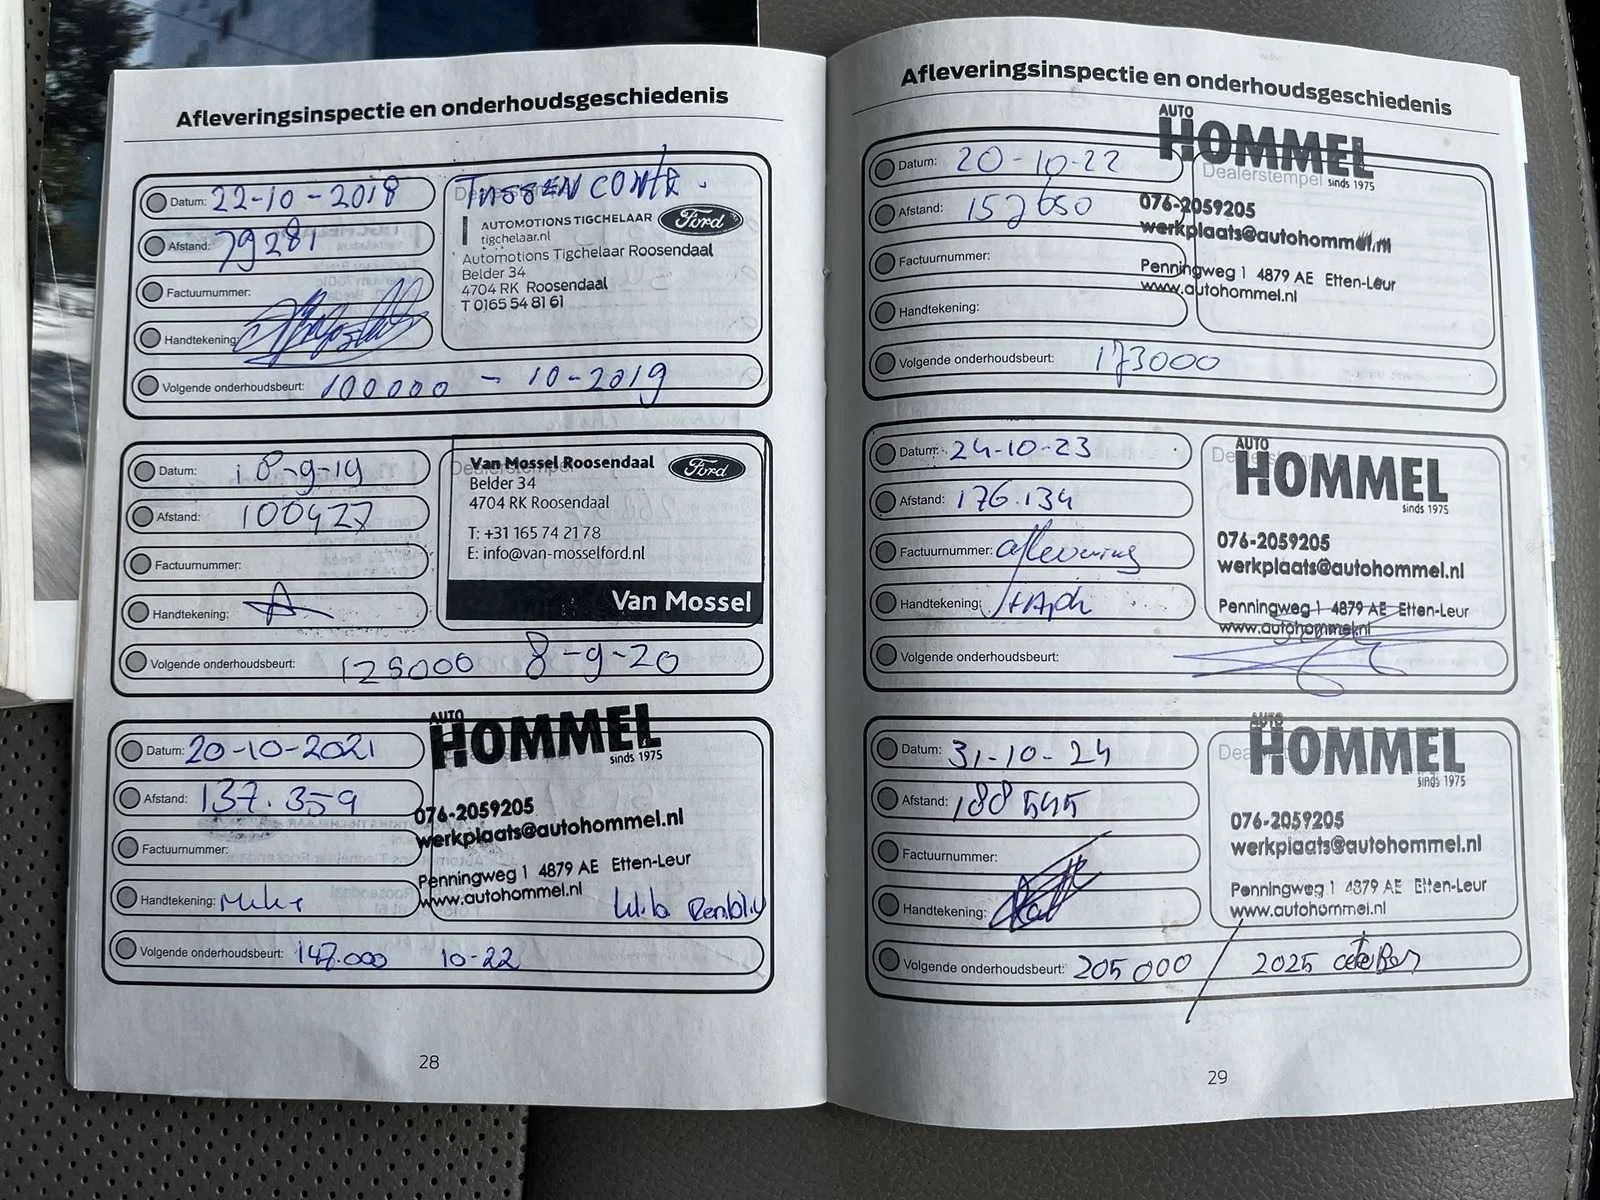 Afleveringsinspectie en onderhoudsgeschiedenis
Datum: 22-10-2018
Afstand: 79281
Factuurnummer:
Handtekening:
Volgende onderhoudsbeurt: 100000 - 10-2019
TUSSEN CONTR.
AUTOMOTIONS TIGCHELAAR
tigchelaar.nl
Ford
Automotions Tigchelaar Roosendaal
Belder 34
4704 RK Roosendaal
T 0165 54 81 61
Datum: 18-9-19
Afstand: 100427
Factuurnummer:
Handtekening:
Volgende onderhoudsbeurt: 125000 8-9-20
Van Mossel Roosendaal
Ford
Belder 34
4704 RK Roosendaal
T: +31 165 74 21 78
E: info@van-mosselford.nl
Van Mossel
Datum: 20-10-2021
Afstand: 137.359
Factuurnummer:
Handtekening:
Volgende onderhoudsbeurt: 147.000 10-22
AUTO
HOMMEL
sinds 1975
076-2059205
werkplaats@autohommel.nl
Penningweg 1 4879 AE Etten-Leur
www.autohommel.nl
28
Afleveringsinspectie en onderhoudsgeschiedenis
Datum: 20-10-22
Afstand: 152650
Factuurnummer:
Handtekening:
Volgende onderhoudsbeurt: 173000
Dealerstempel
AUTO
HOMMEL
sinds 1975
076-2059205
werkplaats@autohommel.nl
Penningweg 1 4879 AE Etten-Leur
www.autohommel.nl
Datum: 24-10-23
Afstand: 176.134
Factuurnummer: aflevering
Handtekening:
Volgende onderhoudsbeurt:
Dealerstempel
AUTO
HOMMEL
sinds 1975
076-2059205
werkplaats@autohommel.nl
Penningweg 1 4879 AE Etten-Leur
www.autohommel.nl
Datum: 31-10-24
Afstand: 188545
Factuurnummer:
Handtekening:
Volgende onderhoudsbeurt: 205000 / 2025 october
AUTO
HOMMEL
sinds 1975
076-2059205
werkplaats@autohommel.nl
Penningweg 1 4879 AE Etten-Leur
www.autohommel.nl
29